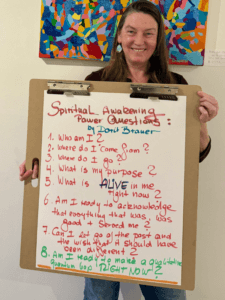 Spiritual Awakening
Power Questions:
by Dord Brauer
1. Who am I?
2. Where do I come from?
3. Where do I go?
4. What is my purpose?
5. What is ALIVE in me
right now?
6. Am I ready to acknowledge
that everything that was, was
good + served me?
7. Can I let go of the past and
the wish that it should have
been different?
8. Am I ready to make a qualitative
Quantum leap RIGHT NOW?